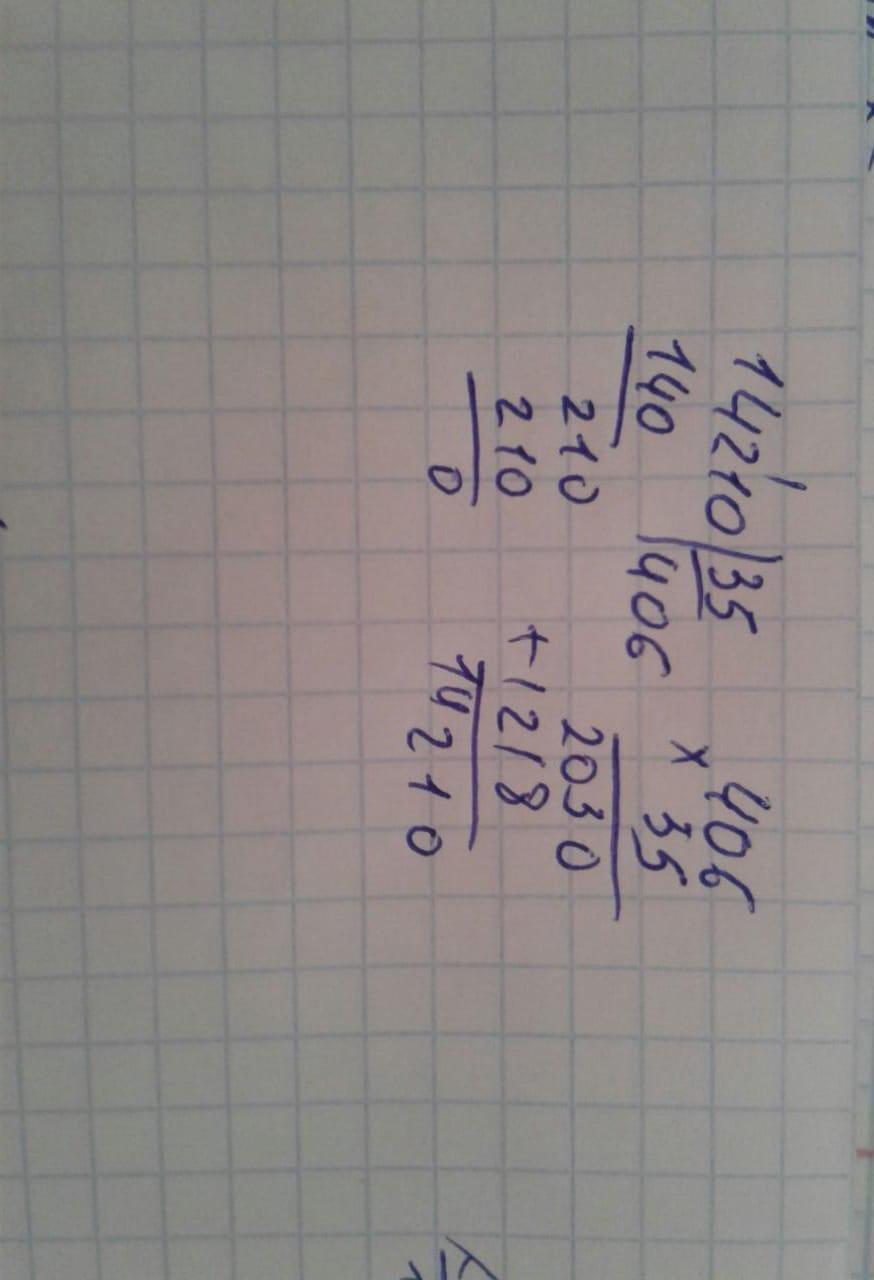 14210|35
140 |406
210
210
0
406
x 35
2030
+1218
14210